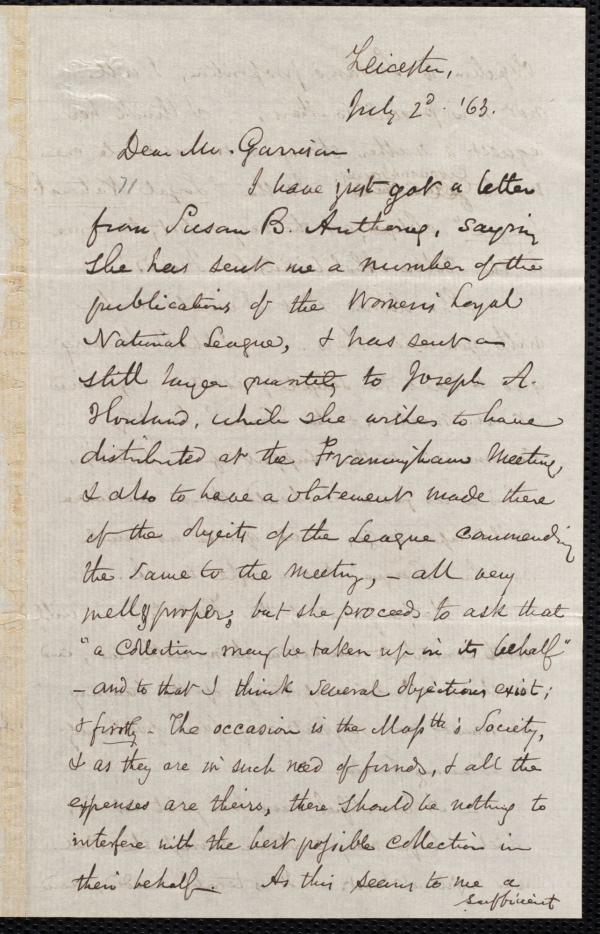 Leicester,
July 2d. '63.
Dear Mr. Garrison
I have just got a letter
from Susan B. Anthony, saying
she has sent me a number of the
publications of the Women's Loyal
National League, & has sent a
still larger quantity to Joseph A.
Howland, which she wishes to have
distributed at the Framingham Meeting,
& also to have a statement made there
of the objects of the League commending
the same to the meeting, - all very
well & proper; but she proceeds to ask that
"a collection may be taken up in its behalf"
- and to that I think several objections exist;
& firstly - The occasion is the Masstts Society,
& as they are in such need of funds, & all the
expenses are theirs, there should be nothing to
interfere with the best possible collection in
their behalf. As this seems to me a
sufficient